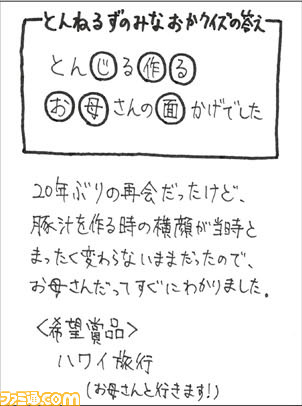 とんねるずのみなおかクイズの答え
とんじる作る
お母さんの面かげでした
20年ぶりの再会だったけど、
豚汁を作る時の横顔が当時と
まったく変わらないままだったので、
お母さんだってすぐにわかりました。
<希望賞品>
ハワイ旅行
(お母さんと行きます!)
ファミ通.com